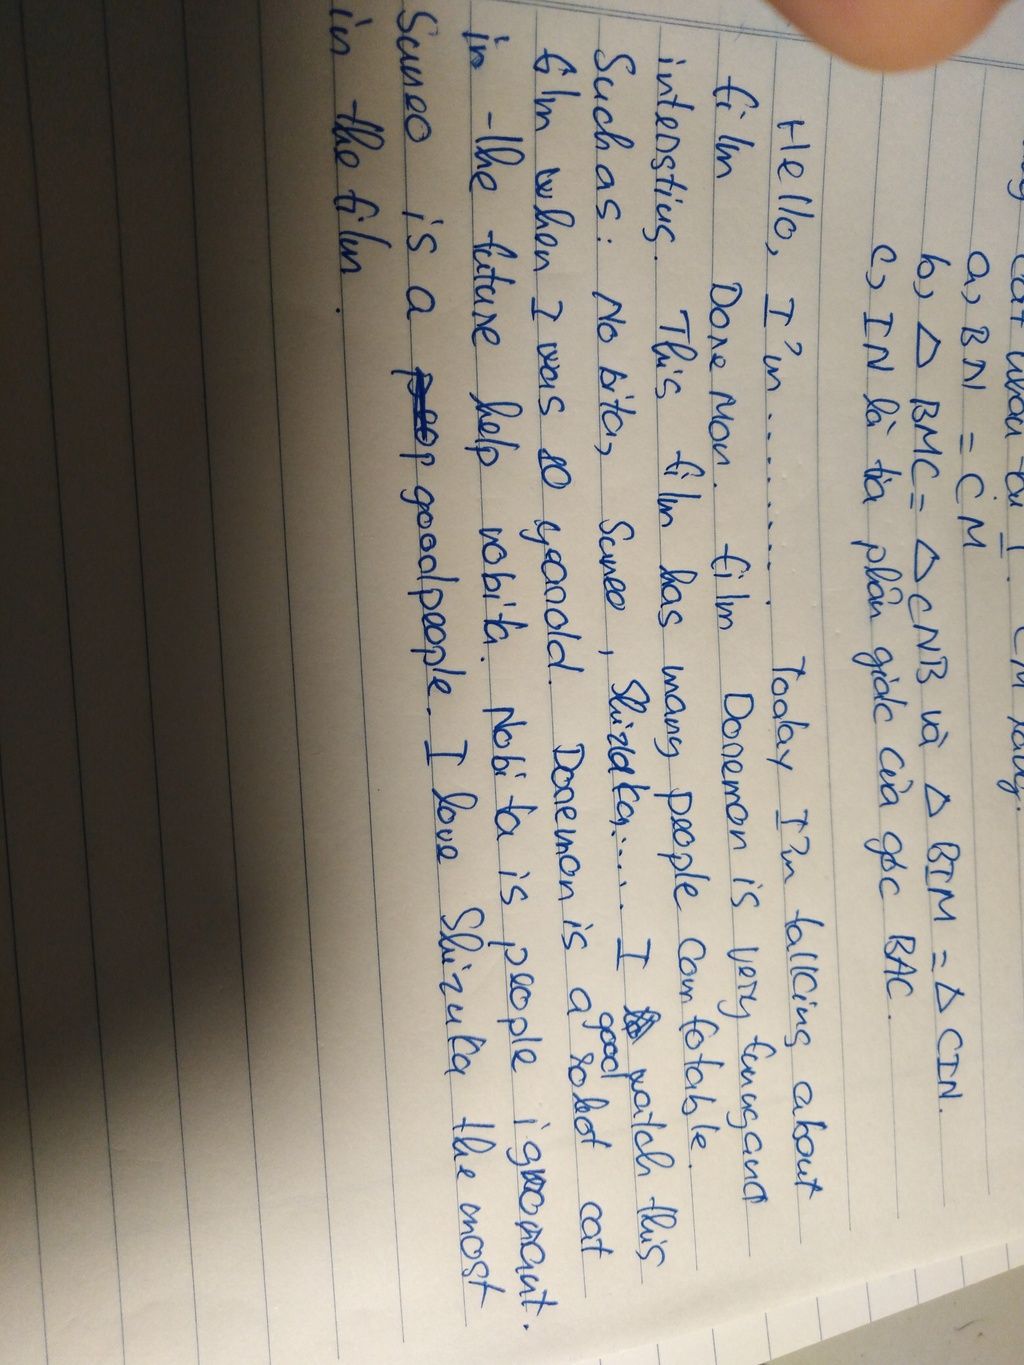 a, BN = CM
b, △ BMC = △ CNB và △ BIM = △ CIN.
c, IN là tia phân giác của góc BAC.
Hello, I'm.......... Today I'm talking about
film Doremon. film Doremon is very funny and
interesting. This film has many people comfotable.
Such as: Nobita, Suneo, Shizuka.... I watch this
film when I was 10 yeaold. Doremon is a good robot cat
in the future help nobita. Nobita is people ignorant.
Suneo is a good people. I love Shizuka the most
in the film.